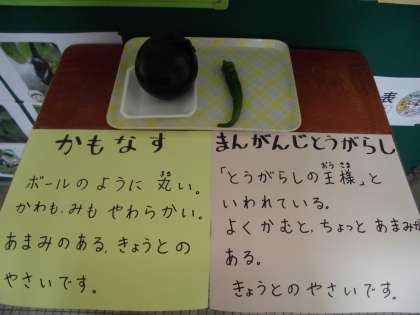 かもなす
ボールのように 丸い。
かわも、みも やわらかい。
あまみのある、きょうとの
やさいです。
まんがんじとうがらし
「とうがらしの王様」と
いわれている。
よくかむと、ちょっと あまみが
ある。
きょうとの やさいです。
表